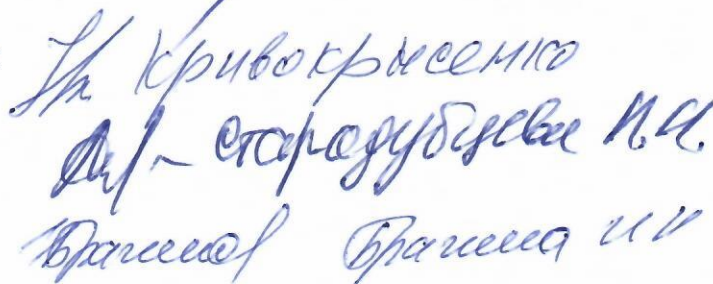 Кривокрысенко
Стародубцева Н.И.
Брагина Брагина И И